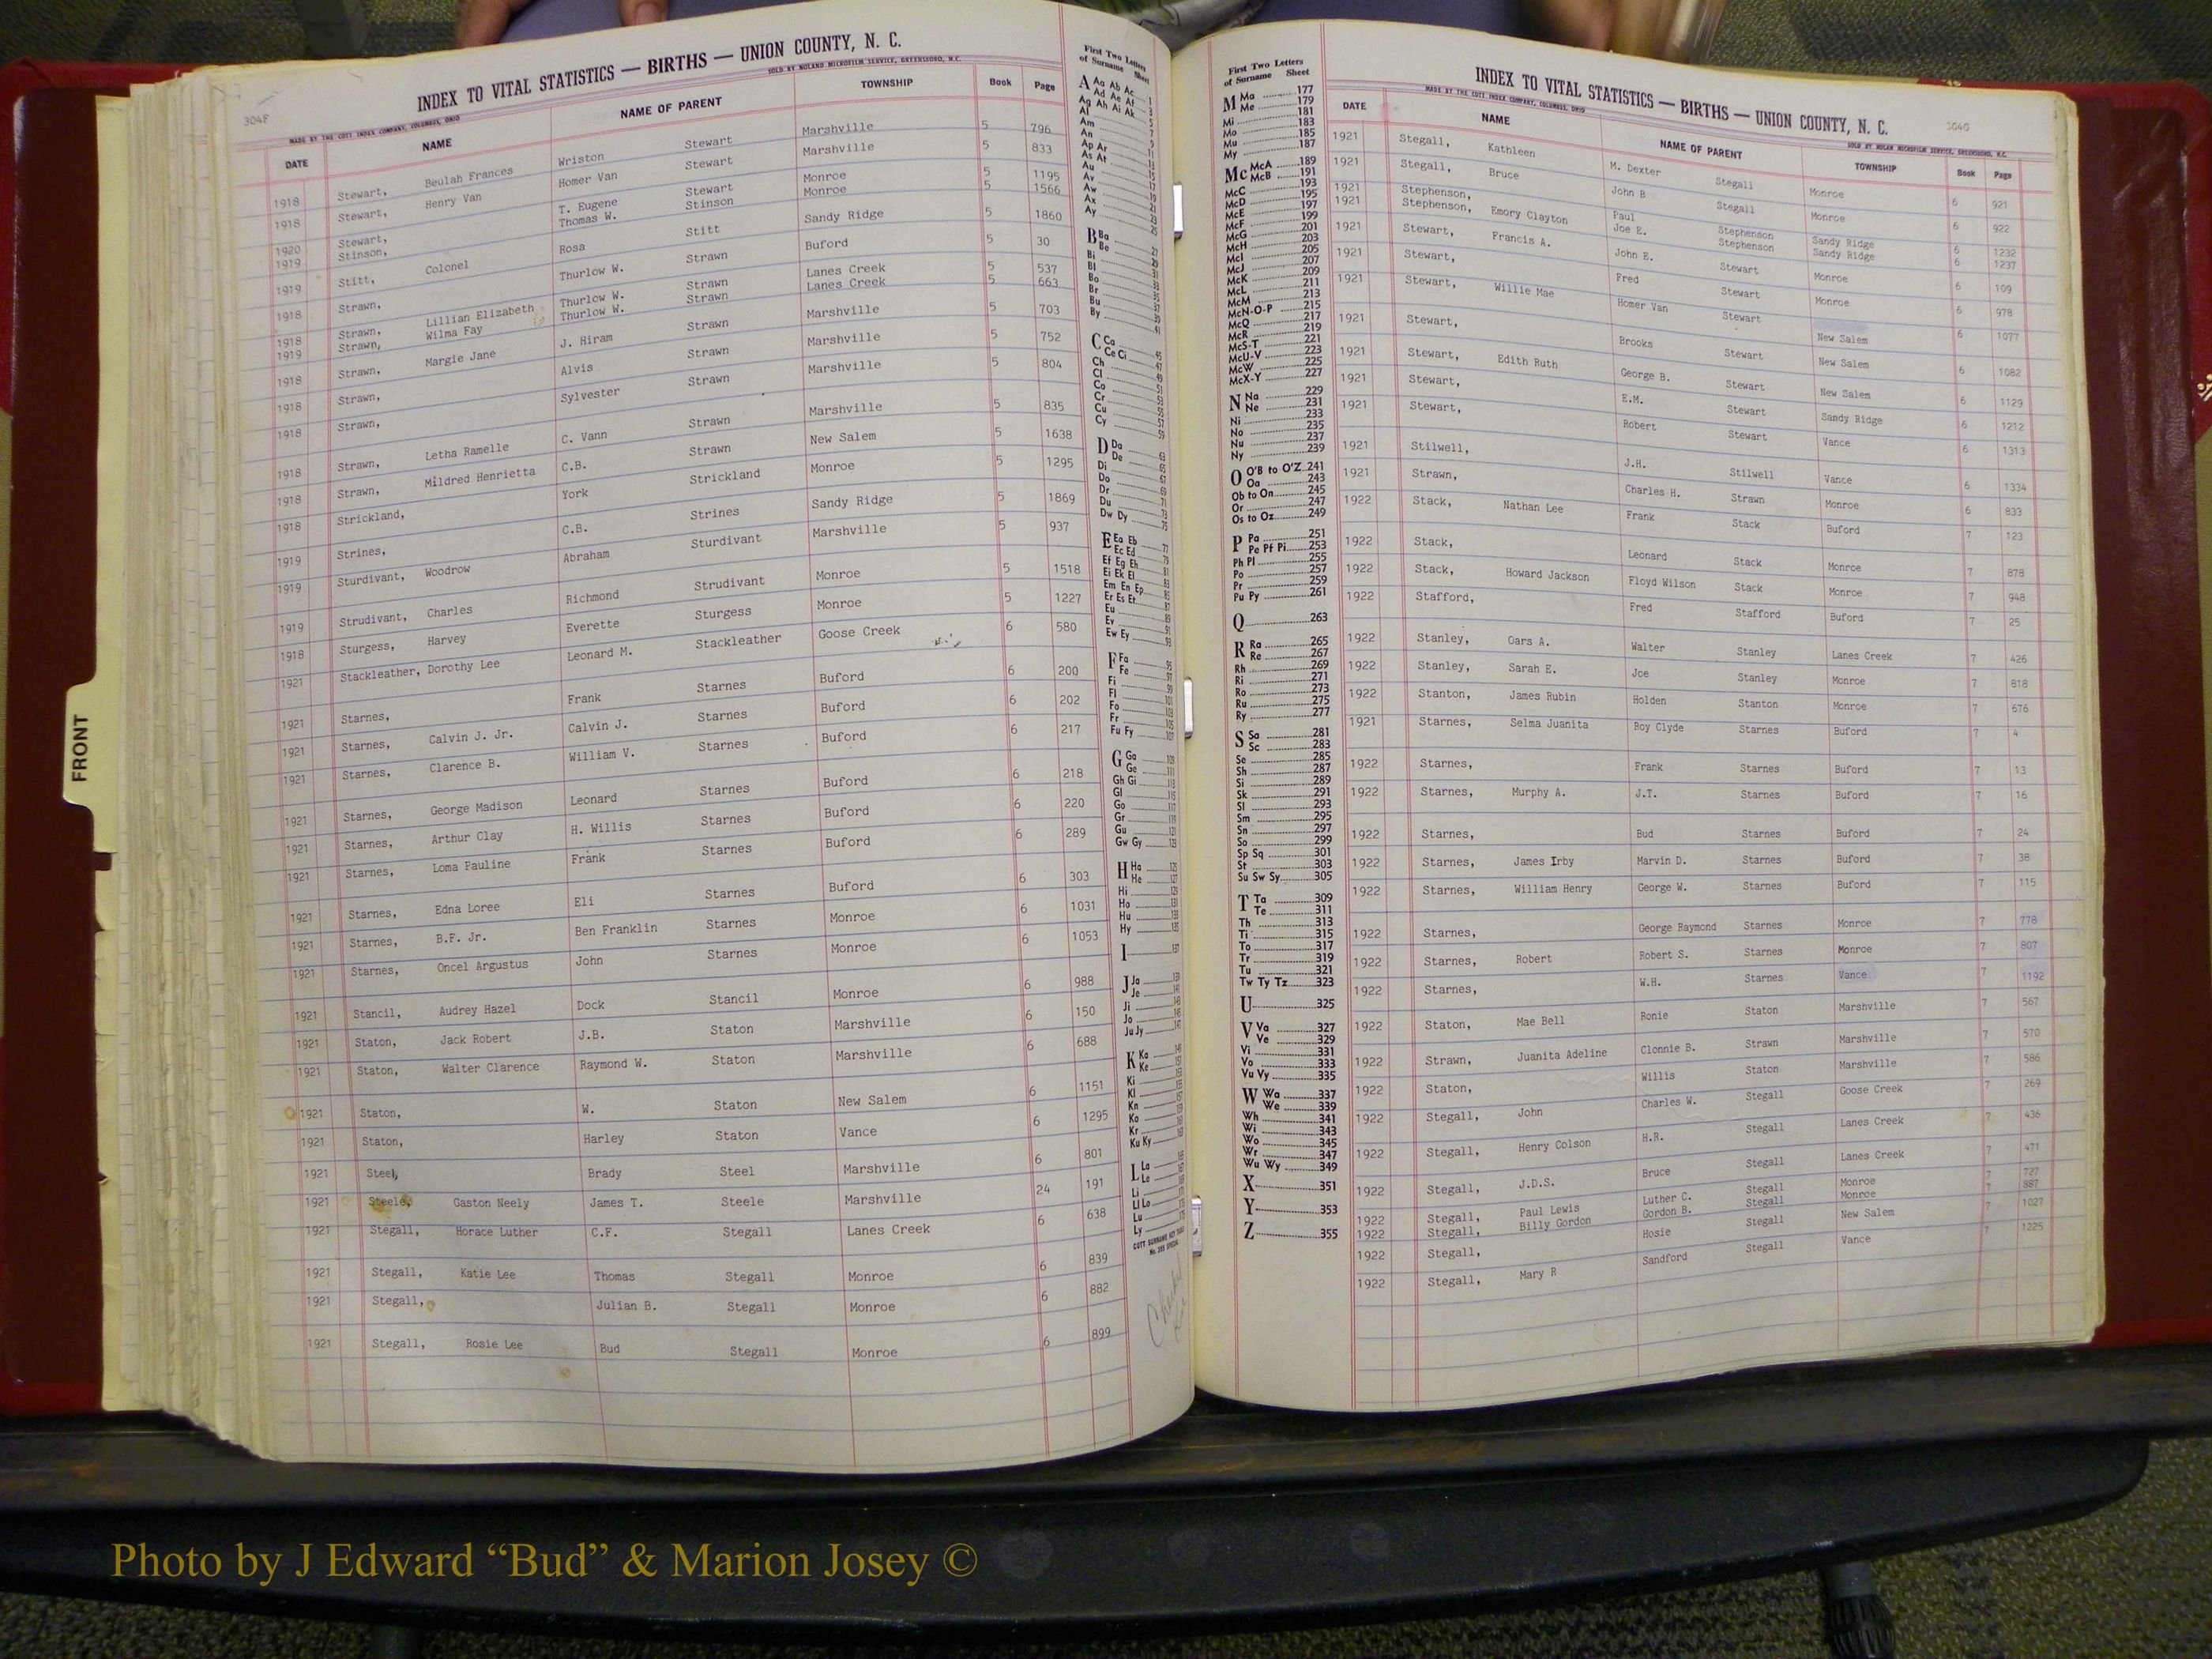 304F
INDEX TO VITAL STATISTICS — BIRTHS — UNION COUNTY, N. C.
MADE BY THE COTT INDEX COMPANY, COLUMBUS, OHIO SOLD BY NOLAND MICROFILM SERVICE, GREENSBORO, N.C.
DATE NAME NAME OF PARENT TOWNSHIP Book Page
1918 Stewart, Beulah Frances Wriston Stewart Marshville 5 796
1918 Stewart, Henry Van Homer Van Stewart Marshville 5 833
1920 Stewart, T. Eugene Stewart Monroe 5 1195
1919 Stinson, Thomas W. Stinson Monroe 5 1566
1919 Stitt, Colonel Rosa Stitt Sandy Ridge 5 1860
1918 Strawn, Thurlow W. Strawn Buford 5 30
1918 Strawn, Lillian Elizabeth Thurlow W. Strawn Lanes Creek 5 537
1919 Strawn, Wilma Fay Thurlow W. Strawn Lanes Creek 5 663
1918 Strawn, Margie Jane J. Hiram Strawn Marshville 5 703
1918 Strawn, Alvis Strawn Marshville 5 752
1918 Strawn, Sylvester Strawn Marshville 5 804
1918 Strawn, Letha Ramelle C. Vann Strawn Marshville 5 835
1918 Strawn, Mildred Henrietta C.B. Strawn New Salem 5 1638
1918 Strickland, York Strickland Monroe 5 1295
1919 Strines, C.B. Strines Sandy Ridge 5 1869
1919 Sturdivant, Woodrow Abraham Sturdivant Marshville 5 937
1919 Strudivant, Charles Richmond Strudivant Monroe 5 1518
1918 Sturgess, Harvey Everette Sturgess Monroe 5 1227
1921 Stackleather, Dorothy Lee Leonard M. Stackleather Goose Creek 6 580
1921 Starnes, Frank Starnes Buford 6 200
1921 Starnes, Calvin J. Jr. Calvin J. Starnes Buford 6 202
1921 Starnes, Clarence B. William V. Starnes Buford 6 217
1921 Starnes, George Madison Leonard Starnes Buford 6 218
1921 Starnes, Arthur Clay H. Willis Starnes Buford 6 220
1921 Starnes, Loma Pauline Frank Starnes Buford 6 289
1921 Starnes, Edna Loree Eli Starnes Buford 6 303
1921 Starnes, B.F. Jr. Ben Franklin Starnes Monroe 6 1031
1921 Starnes, Oncel Argustus John Starnes Monroe 6 1053
1921 Stancil, Audrey Hazel Dock Stancil Monroe 6 988
1921 Staton, Jack Robert J.B. Staton Marshville 6 150
1921 Staton, Walter Clarence Raymond W. Staton Marshville 6 688
1921 Staton, W. Staton New Salem 6 1151
1921 Staton, Harley Staton Vance 6 1295
1921 Steel, Brady Steel Marshville 6 801
1921 Steele, Gaston Neely James T. Steele Marshville 24 191
1921 Stegall, Horace Luther C.F. Stegall Lanes Creek 6 638
1921 Stegall, Katie Lee Thomas Stegall Monroe 6 839
1921 Stegall, Julian B. Stegall Monroe 6 882
1921 Stegall, Rosie Lee Bud Stegall Monroe 6 899
FRONT
First Two Letters
of Surname Sheet
A Aa Ab Ac
Ad Ae Af
Ag Ah Ai Ak
Al
Am
An
Ap Ar
As At
Au
Av
Aw
Ax
Ay
B Ba
Be
Bi
Bl
Bo
Br
Bu
By
C Ca
Ce Ci
Ch
Cl
Co
Cr
Cu
Cy
D Da
De
Di
Do
Dr
Du
Dw Dy
E Ea Eb
Ec Ed
Ef Eg Eh
Ei Ek El
Em En Ep
Er Es Et
Eu
Ev
Ew Ey
F Fa
Fe
Fi
Fl
Fo
Fr
Fu Fy
G Ga
Ge
Gh Gi
Gl
Go
Gr
Gu
Gw Gy
H Ha
He
Hi
Ho
Hu
Hy
I
J Ja
Je
Ji
Jo
Ju Jy
K Ka
Ke
Ki
Kl
Kn
Ko
Kr
Ku Ky
L La
Le
Li
Ll Lo
Lu
Ly
Checked
First Two Letters
of Surname Sheet
M Ma 177
Me 179
Mi 181
Mo 183
Mu 185
My 187
Mc McA 189
McB 191
McC 193
McD 195
McE 197
McF 199
McG 201
McH 203
McI 205
McJ 207
McK 209
McL 211
McM 213
McN-O-P 215
McQ 217
McR 219
McS-T 221
McU-V 223
McW 225
McX-Y 227
N Na 229
Ne 231
Ni 233
No 235
Nu 237
Ny 239
O O'B to O'Z 241
Oa 243
Ob to On 245
Or 247
Os to Oz 249
P Pa 251
Pe Pf Pi 253
Ph Pl 255
Po 257
Pr 259
Pu Py 261
Q 263
R Ra 265
Re 267
Rh 269
Ri 271
Ro 273
Ru 275
Ry 277
S Sa 281
Sc 283
Se 285
Sh 287
Si 289
Sk 291
Sl 293
Sm 295
Sn 297
So 299
Sp Sq 301
St 303
Su Sw Sy 305
T Ta 309
Te 311
Th 313
Ti 315
To 317
Tr 319
Tu 321
Tw Ty Tz 323
U 325
V Va 327
Ve 329
Vi 331
Vo 333
Vu Vy 335
W Wa 337
We 339
Wh 341
Wi 343
Wo 345
Wr 347
Wu Wy 349
X 351
Y 353
Z 355
INDEX TO VITAL STATISTICS — BIRTHS — UNION COUNTY, N. C.
MADE BY THE COTT INDEX COMPANY, COLUMBUS, OHIO
DATE NAME NAME OF PARENT TOWNSHIP Book Page
1921 Stegall, Kathleen M. Dexter Stegall Monroe 6 921
1921 Stegall, Bruce John B Stegall Monroe 6 922
1921 Stephenson, Paul Stephenson Sandy Ridge 6 1232
1921 Stephenson, Emory Clayton Joe E. Stephenson Sandy Ridge 6 1237
1921 Stewart, Francis A. John E. Stewart Monroe 6 109
1921 Stewart, Fred Stewart Monroe 6 978
1921 Stewart, Willie Mae Homer Van Stewart New Salem 6 1077
1921 Stewart, Brooks Stewart New Salem 6 1082
1921 Stewart, Edith Ruth George B. Stewart New Salem 6 1129
1921 Stewart, E.M. Stewart Sandy Ridge 6 1212
1921 Stewart, Robert Stewart Vance 6 1313
1921 Stilwell, J.H. Stilwell Vance 6 1334
1921 Strawn, Charles H. Strawn Monroe 6 833
1922 Stack, Nathan Lee Frank Stack Buford 7 123
1922 Stack, Leonard Stack Monroe 7 878
1922 Stack, Howard Jackson Floyd Wilson Stack Monroe 7 948
1922 Stafford, Fred Stafford Buford 7 25
1922 Stanley, Oars A. Walter Stanley Lanes Creek 7 426
1922 Stanley, Sarah E. Joe Stanley Monroe 7 818
1922 Stanton, James Rubin Holden Stanton Monroe 7 676
1921 Starnes, Selma Juanita Roy Clyde Starnes Buford 7 4
1922 Starnes, Frank Starnes Buford 7 13
1922 Starnes, Murphy A. J.T. Starnes Buford 7 16
1922 Starnes, Bud Starnes Buford 7 24
1922 Starnes, James Irby Marvin D. Starnes Buford 7 38
1922 Starnes, William Henry George W. Starnes Buford 7 115
1922 Starnes, George Raymond Starnes Monroe 7 778
1922 Starnes, Robert Robert S. Starnes Monroe 7 807
1922 Starnes, W.H. Starnes Vance 7 1192
1922 Staton, Mae Bell Ronie Staton Marshville 7 567
1922 Strawn, Juanita Adeline Clonnie B. Strawn Marshville 7 570
1922 Staton, Willis Staton Marshville 7 586
1922 Stegall, John Charles W. Stegall Goose Creek 7 269
1922 Stegall, Henry Colson H.R. Stegall Lanes Creek 7 436
1922 Stegall, J.D.S. Bruce Stegall Lanes Creek 7 471
1922 Stegall, Paul Lewis Luther C. Stegall Monroe 7 727
1922 Stegall, Billy Gordon Gordon B. Stegall Monroe 7 887
1922 Stegall, Hosie Stegall New Salem 7 1027
1922 Stegall, Mary R Sandford Stegall Vance 7 1225
Photo by J Edward “Bud” & Marion Josey ©